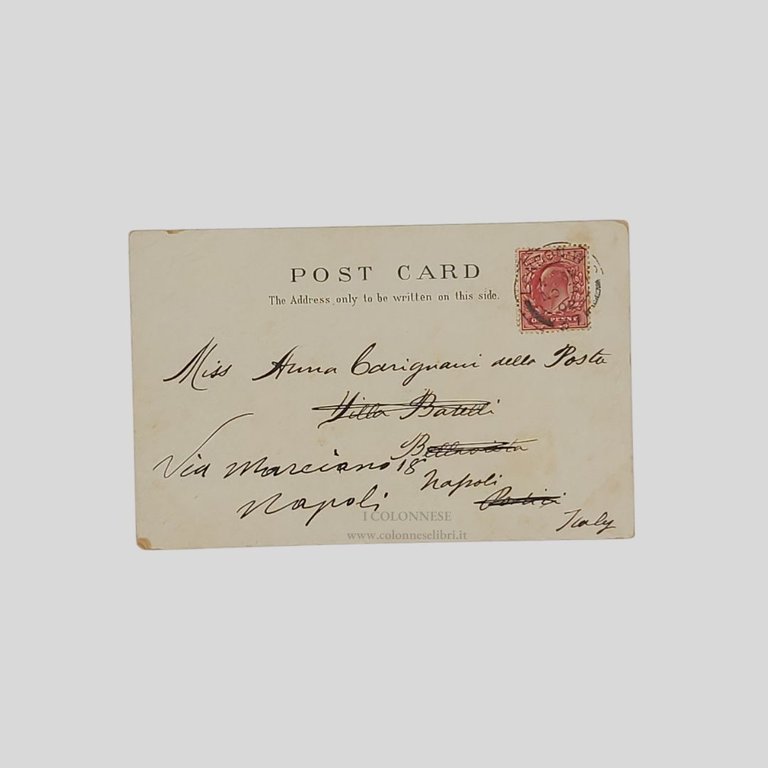 POST CARD
The Address only to be written on this side.
ONE PENNY
Miss Anna Carignani della Posta
Villa Batelli
Bellavista
Via Marciano 18
Napoli
Napoli
Portici
Italy
I COLONNESE
www.colonneselibri.it